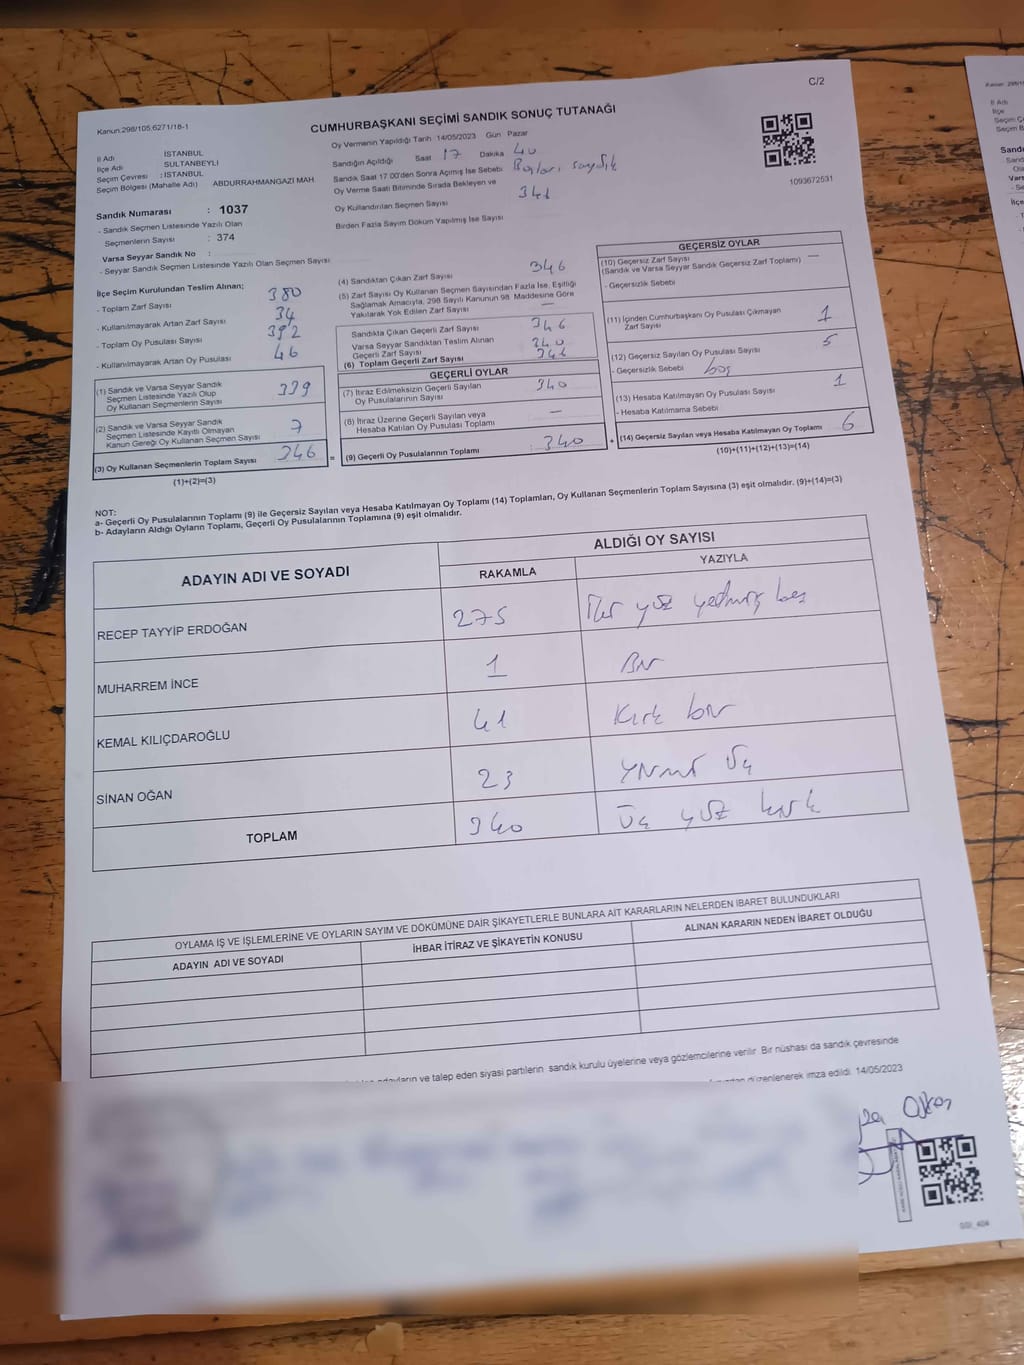 C/2
Kanun:298/105;6271/18-1
CUMHURBAŞKANI SEÇİMİ SANDIK SONUÇ TUTANAĞI
İl Adı İSTANBUL
İlçe Adı SULTANBEYLİ
Seçim Çevresi : İSTANBUL
Seçim Bölgesi (Mahalle Adı) ABDURRAHMANGAZİ MAH.
Sandık Numarası : 1037
- Sandık Seçmen Listesinde Yazılı Olan
Seçmenlerin Sayısı : 374
Varsa Seyyar Sandık No :
- Seyyar Sandık Seçmen Listesinde Yazılı Olan Seçmen Sayısı:
Oy Vermenin Yapıldığı Tarih 14/05/2023 Gün Pazar
Sandığın Açıldığı Saat 17 Dakika 40
Sandık Saat 17.00'den Sonra Açımış İse Sebebi
Oy Verme Saati Bitiminde Sırada Bekleyen ve
Oy Kullandırılan Seçmen Sayısı
Birden Fazla Sayım Döküm Yapılmış İse Sayısı
1093672531
İlçe Seçim Kurulundan Teslim Alınan;
- Toplam Zarf Sayısı 380
- Kullanılmayarak Artan Zarf Sayısı 34
- Toplam Oy Pusulası Sayısı 392
- Kullanılmayarak Artan Oy Pusulası 46
(1) Sandık ve Varsa Seyyar Sandık
Seçmen Listesinde Yazılı Olup
Oy Kullanan Seçmenlerin Sayısı 339
(2) Sandık ve Varsa Seyyar Sandık
Seçmen Listesinde Kayıtlı Olmayan
Kanun Gereği Oy Kullanan Seçmen Sayısı 7
(3) Oy Kullanan Seçmenlerin Toplam Sayısı 346 =
(1)+(2)=(3)
(4) Sandıktan Çıkan Zarf Sayısı 346
(5) Zarf Sayısı Oy Kullanan Seçmen Sayısından Fazla İse, Eşitliği
Sağlamak Amacıyla, 298 Sayılı Kanunun 98. Maddesine Göre
Yakılarak Yok Edilen Zarf Sayısı —
Sandıkta Çıkan Geçerli Zarf Sayısı 346
Varsa Seyyar Sandıktan Teslim Alınan
Geçerli Zarf Sayısı
(6) Toplam Geçerli Zarf Sayısı
GEÇERLİ OYLAR
(7) İtiraz Edilmeksizin Geçerli Sayılan
Oy Pusulasının Sayısı 340
(8) İtiraz Üzerine Geçerli Sayılan veya
Hesaba Katılan Oy Pusulası Toplamı —
(9) Geçerli Oy Pusulalarının Toplamı : 340 +
GEÇERSİZ OYLAR
(10) Geçersiz Zarf Sayısı —
(Sandık ve Varsa Seyyar Sandık Geçersiz Zarf Toplamı)
- Geçersizlik Sebebi
(11) İçinden Cumhurbaşkanı Oy Pusulası Çıkmayan
Zarf Sayısı 1
(12) Geçersiz Sayılan Oy Pusulası Sayısı 5
- Geçersizlik Sebebi boş
(13) Hesaba Katılmayan Oy Pusulası Sayısı 1
- Hesaba Katılmama Sebebi
(14) Geçersiz Sayılan veya Hesaba Katılmayan Oy Toplamı 6
(10)+(11)+(12)+(13)=(14)
NOT:
a- Geçerli Oy Pusulalarının Toplamı (9) ile Geçersiz Sayılan veya Hesaba Katılmayan Oy Toplamı (14) Toplamları, Oy Kullanan Seçmenlerin Toplam Sayısına (3) eşit olmalıdır. (9)+(14)=(3)
b- Adayların Aldığı Oyların Toplamı, Geçerli Oy Pusulalarının Toplamına (9) eşit olmalıdır.
ADAYIN ADI VE SOYADI ALDIĞI OY SAYISI
RAKAMLA YAZIYLA
RECEP TAYYİP ERDOĞAN 275 İki yüz yetmiş beş
MUHARREM İNCE 1 Bir
KEMAL KILIÇDAROĞLU 41 Kırk bir
SİNAN OĞAN 23 Yirmi üç
TOPLAM 340 Üç yüz kırk
OYLAMA İŞ VE İŞLEMLERİNE VE OYLARIN SAYIM VE DÖKÜMÜNE DAİR ŞİKAYETLERLE BUNLARA AİT KARARLARIN NELERDEN İBARET BULUNDUKLARI
ADAYIN ADI VE SOYADI İHBAR İTİRAZ VE ŞİKAYETİN KONUSU ALINAN KARARIN NEDEN İBARET OLDUĞU
ve talep eden siyasi partilerin sandık kurulu üyelerine veya gözlemcilerine verilir. Bir nüshası da sandık çevresinde
düzenlenerek imza edildi. 14/05/2023